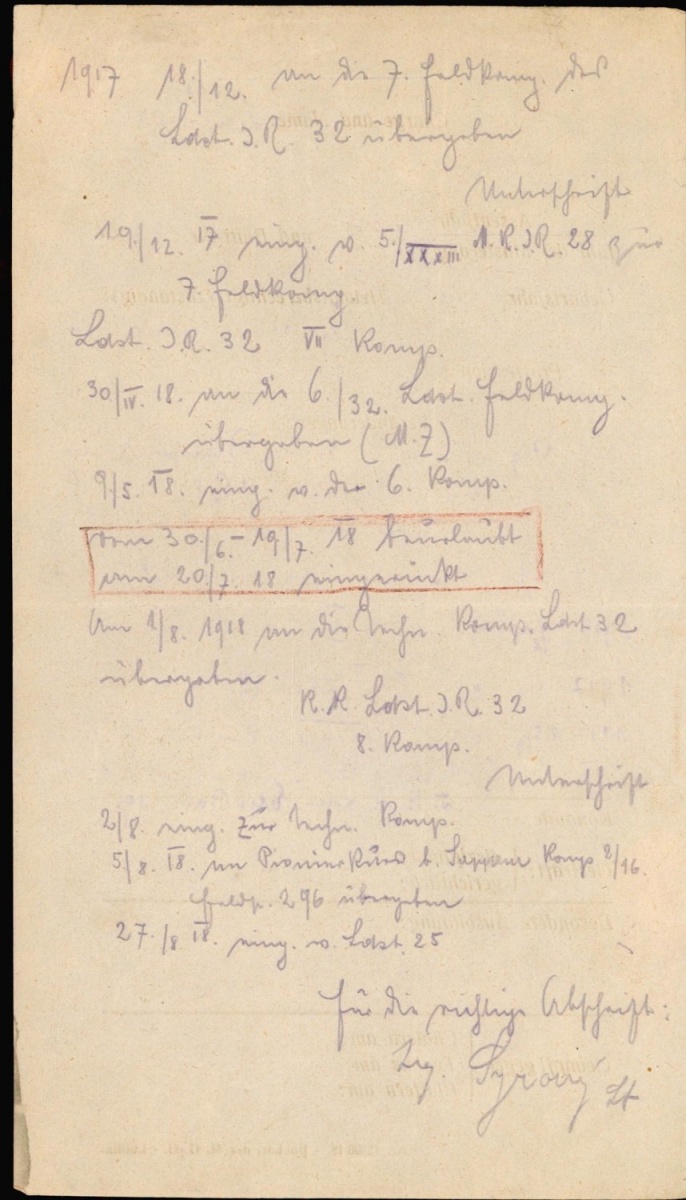 1917 18./12. an die 7. Feldkomp. des
Ldst. I.R. 32 übergeben
Unterschrift
19./12. 17 eing. v. 5./XXXIII I.R. 28 zur
7 Feldkomp
Ldst. I.R. 32 VII Komp.
30/IV. 18. an die 6./32. Ldst. Feldkomp.
übergeben (M.Z)
9/5. 18. eing. v. der 6. Komp.
vom 30./6. - 19/7. 18 beurlaubt
am 20/7. 18 eingerückt
Am 1/8. 1918 an die Techn. Komp. Ldst 32
übergeben.
K.K. Ldst. I.R. 32
8. Komp.
Unterschrift
2/8. eing. zur Techn. Komp.
5/8. 18. an Pionierkurs b. Sappeur Komp 2/16.
Feldp. 296 übergeben
27./8 18. eing. v. Ldst. 25
Für die richtige Abschrift:
Lt